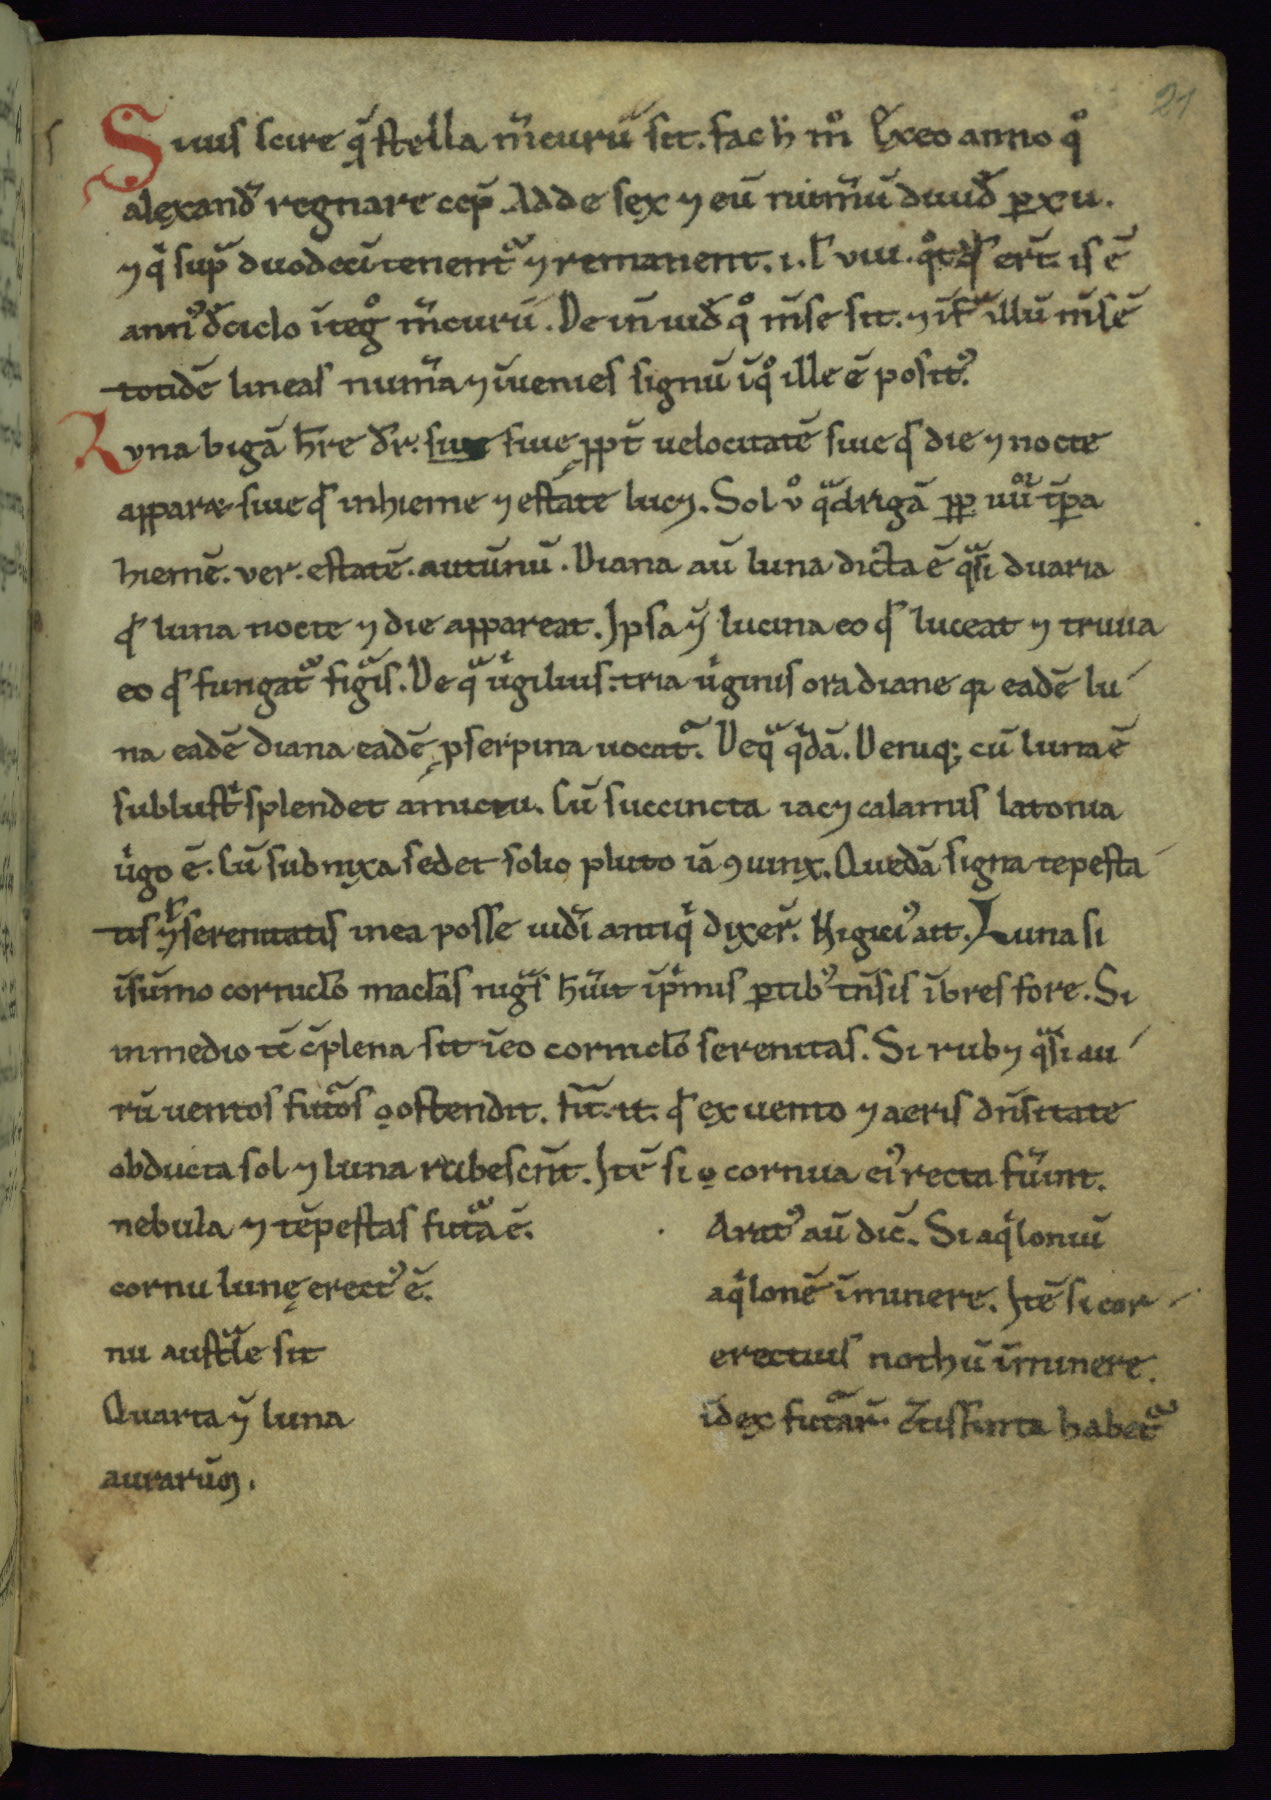 21
Siuis scire qͣ stella m̄curiꝰ sit. fac h̄ m̊ Ex eo anno qͦ
alexand̄ regnare cep̄. Adde sex ⁊ eū num̄ū diuid̄ ꝑ xii.
⁊ qͥ sup̄ duodeci tenent᷑ ⁊ remanent. i. l̄ viii. qͦt qͥ er̄t. is ē
annꝰ d̄ ciclo īteg̊ m̄curii. De in̄ uid̄ qͦ m̄se sit. ⁊ if̄ illū m̄sē
totidē lineas num̄a ⁊ īuenies signū ī qͦ ille ē positꝰ.
Luna bigā h̄re dr̄. siue siue ꝓpt̄ uelocitatē siue qͥ die ⁊ nocte
apparet siue qͥ in hieme ⁊ estate luc⁊. Sol v̊ qͣdrigā ꝓꝑ iiiiͦr t̄ꝑa
hiemē. ver. estatē. autūnū. Diana aū luna dicta ē qͣsi duaria
qͥ luna nocte ⁊ die appareat. Ipsa ⁊̄ lucina eo qͥ luceat ⁊ triuia
eo qͥ fungat᷑ figͣis. De qͣ uͥgilius. tria uͥginis ora diane qꝛ eadē lu
na eadē diana eadē ꝓserpina uocat᷑. De qͣ qͥdā. Deniq; cū luna ē
sublustͥ splendet amictu. Cū succincta iac⁊ calamis latonia
uͥgo ē. Cū subnixa sedet solio pluto iā ꝯiunx. Quedā signa tēpesta
tis ⁊ l̄ serenitatis in ea posse uid̄i antiqͥ dixer̄. Nigiciꝰ ait. Luna si
ī sūmo cornicl̄o macl̄as nigͣs h̄u̅it ī pͥmis ꝑtibꝰ m̄sis ībres fore. Si
in medio tc̄ c̄ plena sit ī eo cornicl̄o serenitas. Si rub⁊ qͣsi au
rū uentos futͦs ostendit. fit. it. qͥ ex uento ⁊ aeris dn̄sitate
obducta sol ⁊ luna rubescn̄t. Itē si cornua eiꝰ recta fu̅int.
nebula ⁊ tēpestas futͣa ē. Aratꝰ aū dic̄. Si aqͥloniū
cornu lunę erectꝰ ē. aqͥlonē īminere. Itē si cor
nu austͣle sit erectius nothū īminere.
Quarta ⁊̄ luna īdex futͣar̄ c̄tissima habet᷑
aurarūꝫ.